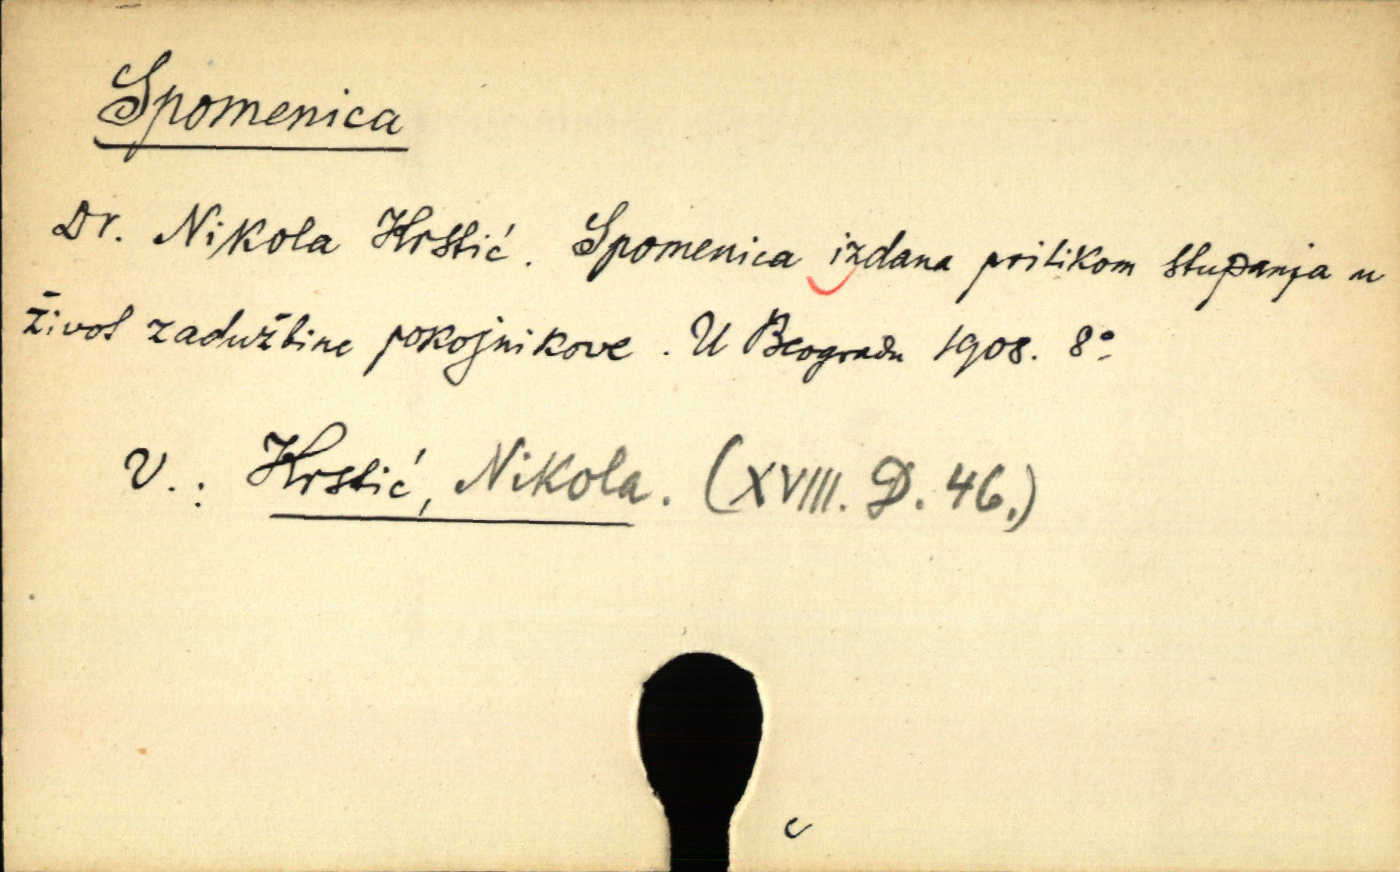 Spomenica
Dr. Nikola Krstić. Spomenica izdana prilikom stupanja u
život zadužbine pokojnikove. U Beogradu 1908. 8°
V.: Krstić, Nikola. (XVIII. D. 46.)
c